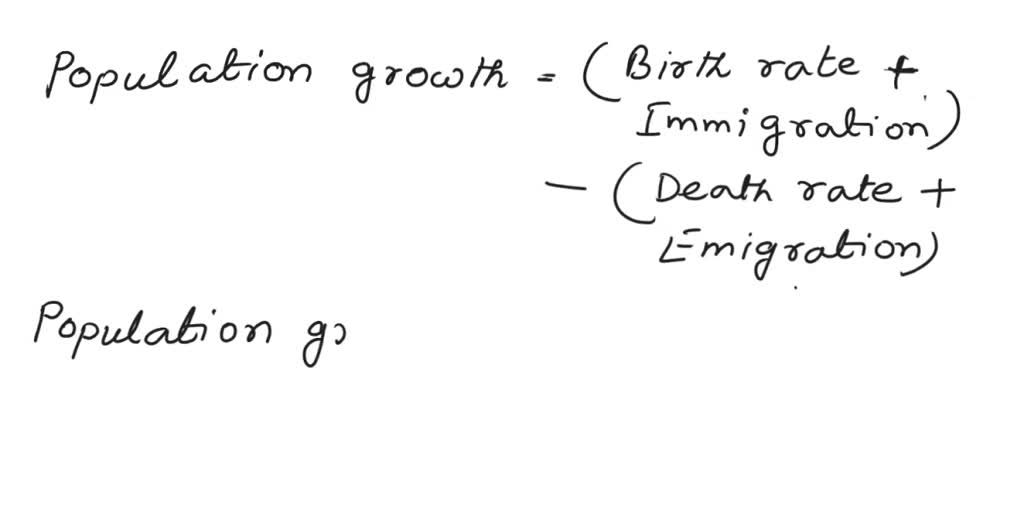 Population growth = (Birth rate +
Immigration)
- (Death rate +
Emigration)
Population gr